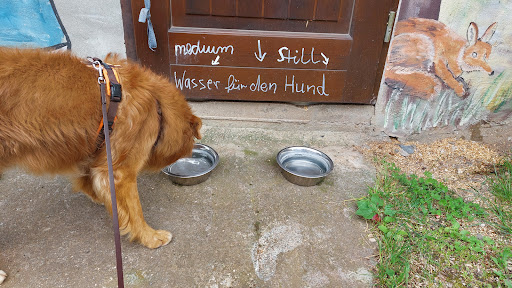 medium ↓ Still ↓
Wasser für den Hund